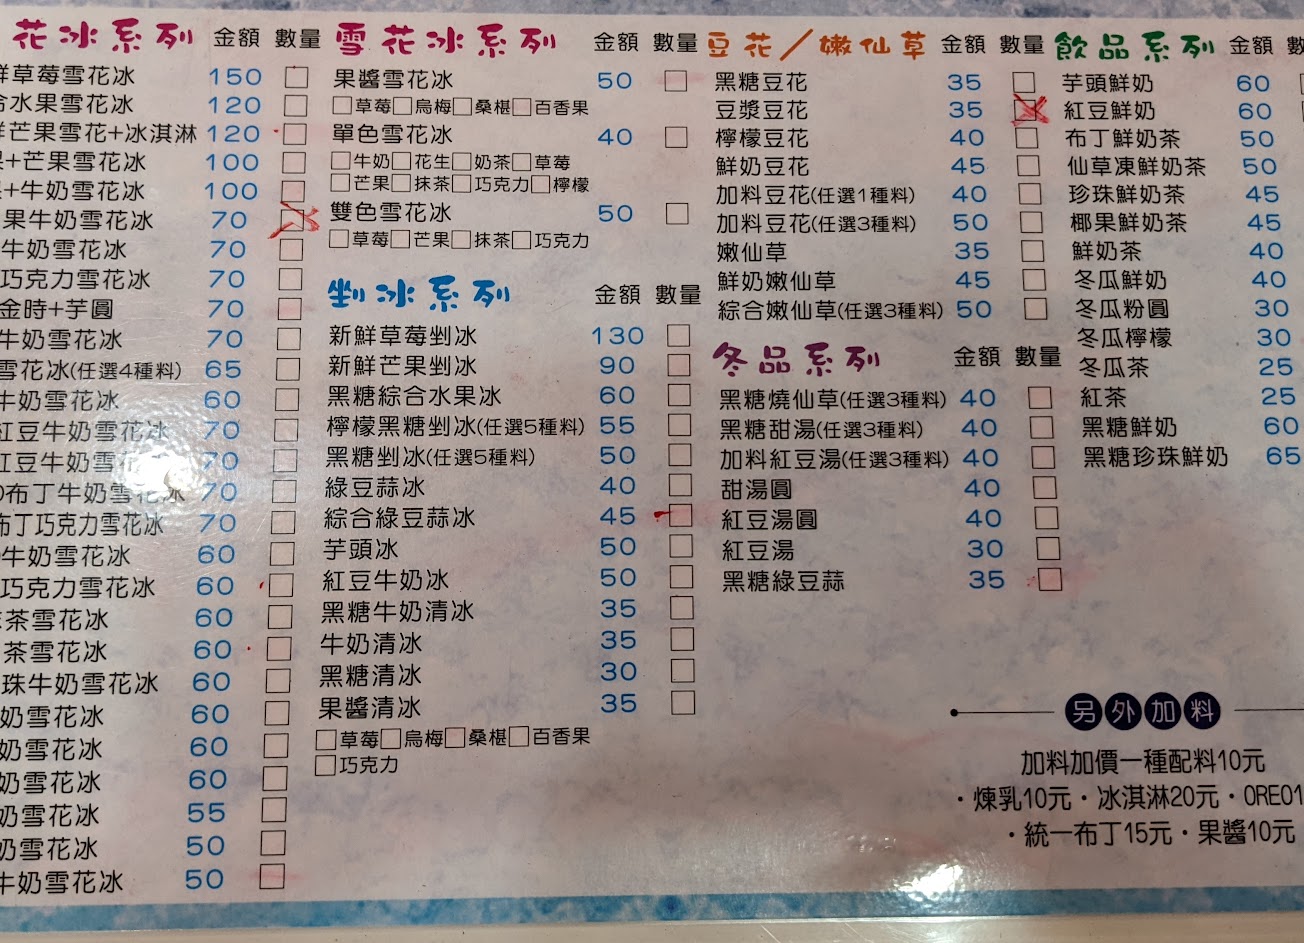 花冰系列 金額 數量
鮮草莓雪花冰 150
水果雪花冰 120
芒果雪花+冰淇淋 120
+芒果雪花冰 100
+牛奶雪花冰 100
果牛奶雪花冰 70
牛奶雪花冰 70
巧克力雪花冰 70
金時+芋圓 70
牛奶雪花冰 70
雪花冰(任選4種料) 65
牛奶雪花冰 60
紅豆牛奶雪花冰 70
紅豆牛奶雪花 70
O布丁牛奶雪花冰 70
布丁巧克力雪花冰 70
牛奶雪花冰 60
巧克力雪花冰 60
茶雪花冰 60
茶雪花冰 60
珠牛奶雪花冰 60
奶雪花冰 60
奶雪花冰 60
奶雪花冰 60
奶雪花冰 55
奶雪花冰 50
牛奶雪花冰 50
雪花冰系列 金額 數量
果醬雪花冰 50
□草莓□烏梅□桑椹□百香果
單色雪花冰 40
□牛奶□花生□奶茶□草莓
□芒果□抹茶□巧克力□檸檬
雙色雪花冰 50
□草莓□芒果□抹茶□巧克力
剉冰系列 金額 數量
新鮮草莓剉冰 130
新鮮芒果剉冰 90
黑糖綜合水果冰 60
檸檬黑糖剉冰(任選5種料) 55
黑糖剉冰(任選5種料) 50
綠豆蒜冰 40
綜合綠豆蒜冰 45
芋頭冰 50
紅豆牛奶冰 50
黑糖牛奶清冰 35
牛奶清冰 35
黑糖清冰 30
果醬清冰 35
□草莓□烏梅□桑椹□百香果
□巧克力
豆花/嫩仙草 金額 數量
黑糖豆花 35
豆漿豆花 35
檸檬豆花 40
鮮奶豆花 45
加料豆花(任選1種料) 40
加料豆花(任選3種料) 50
嫩仙草 35
鮮奶嫩仙草 45
綜合嫩仙草(任選3種料) 50
冬品系列 金額 數量
黑糖燒仙草(任選3種料) 40
黑糖甜湯(任選3種料) 40
加料紅豆湯(任選3種料) 40
甜湯圓 40
紅豆湯圓 40
紅豆湯 30
黑糖綠豆蒜 35
飲品系列 金額 數
芋頭鮮奶 60
紅豆鮮奶 60
布丁鮮奶茶 50
仙草凍鮮奶茶 50
珍珠鮮奶茶 45
椰果鮮奶茶 45
鮮奶茶 40
冬瓜鮮奶 40
冬瓜粉圓 30
冬瓜檸檬 30
冬瓜茶 25
紅茶 25
黑糖鮮奶 60
黑糖珍珠鮮奶 65
另外加料
加料加價一種配料10元
·煉乳10元·冰淇淋20元·OREO1
·統一布丁15元·果醬10元